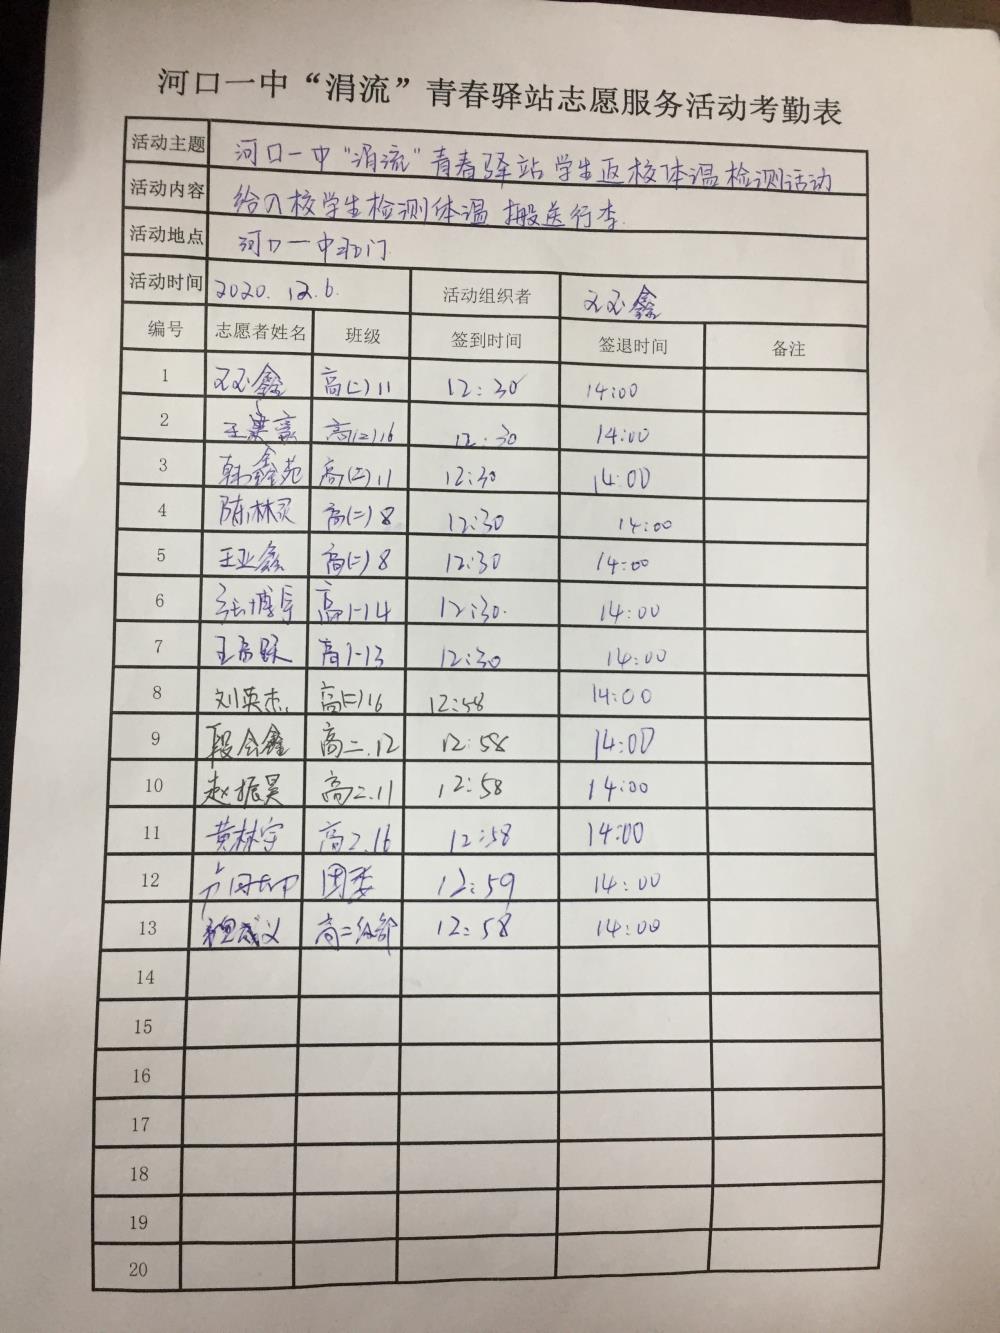 河口一中“涓流”青春驿站志愿服务活动考勤表
活动主题 河口一中“涓流”青春驿站学生返校体温检测活动
活动内容 给入校学生检测体温 搬送行李.
活动地点 河口一中北门
活动时间 2020.12.6. 活动组织者
编号 志愿者姓名 班级 签到时间 签退时间 备注
1 高(二)11 12:30 14:00
2 高(二)16 12:30 14:00
3 韩鑫苑 高(二)11 12:30 14:00
4 陈林灵 高(二)8 12:30 14:00
5 王亚鑫 高(二)8 12:30 14:00
6 高一14 12:30. 14:00
7 高一13 12:30 14:00
8 刘英杰 高(二)16 12:58 14:00
9 段会鑫 高二.12 12:58 14:00
10 赵振昊 高二.11 12:58 14:00
11 黄林宇 高二.16 12:58 14:00
12 团委 12:59 14:00
13 高二级部 12:58 14:00
14
15
16
17
18
19
20